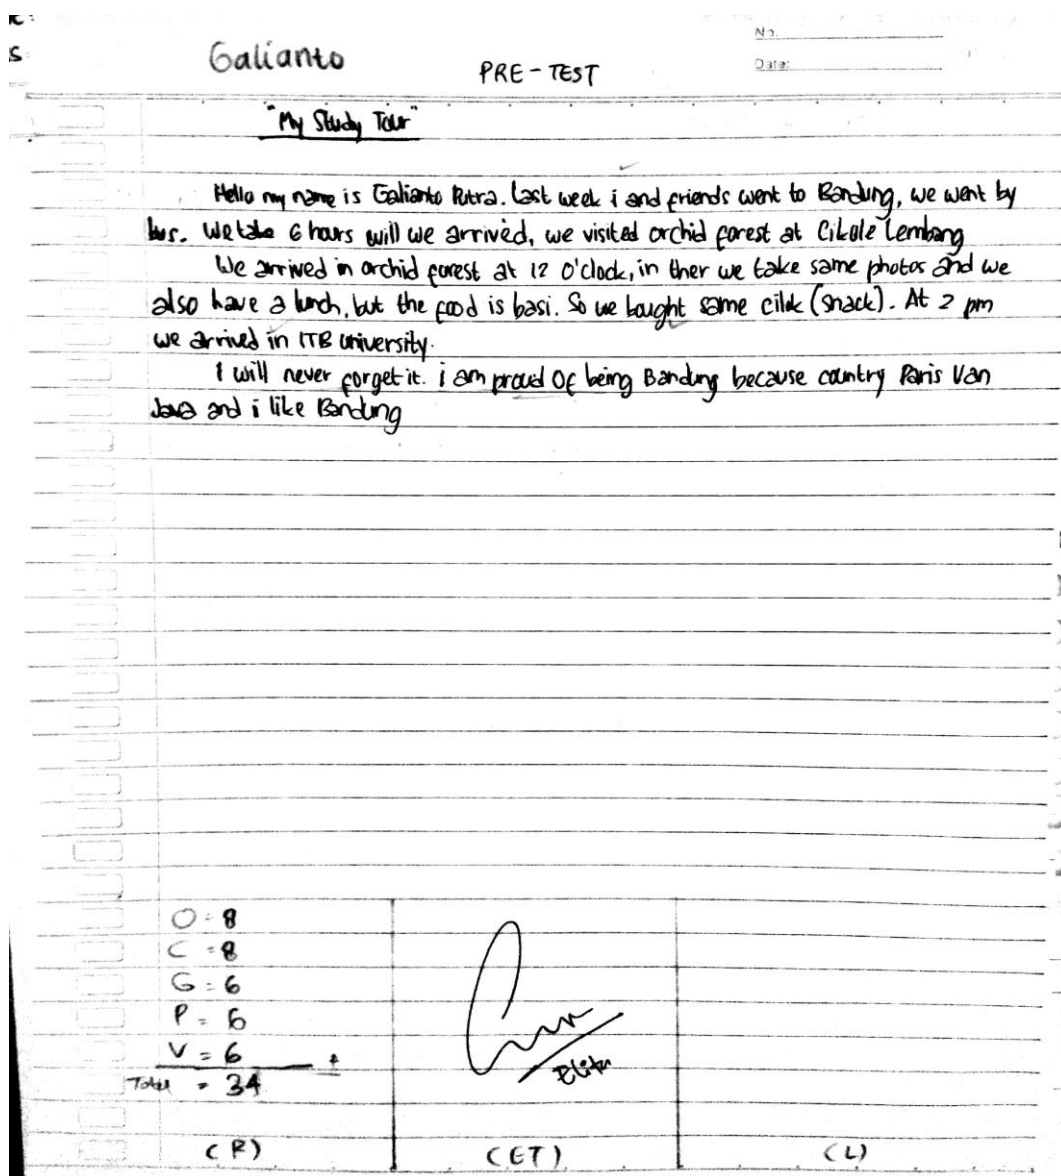 S
Galianto
PRE-TEST
No.
Date:
"My Study Tour"
Hello my name is Galianto Putra. Last week i and friends went to Bandung, we went by
bus. We take 6 hours will we arrived, we visited orchid forest at Cikole Lembang
We arrived in orchid forest at 12 O'clock, in ther we take same photos and we
also have a lunch, but the food is basi. So we bought same cilok (snack). At 2 pm
we arrived in ITB university.
I will never forget it. i am proud Of being Bandung because country Paris Van
Java and i like Bandung
O = 8
C = 8
G = 6
P = 6
V = 6 +
Total = 34
Elita
(R)
(ET)
(L)